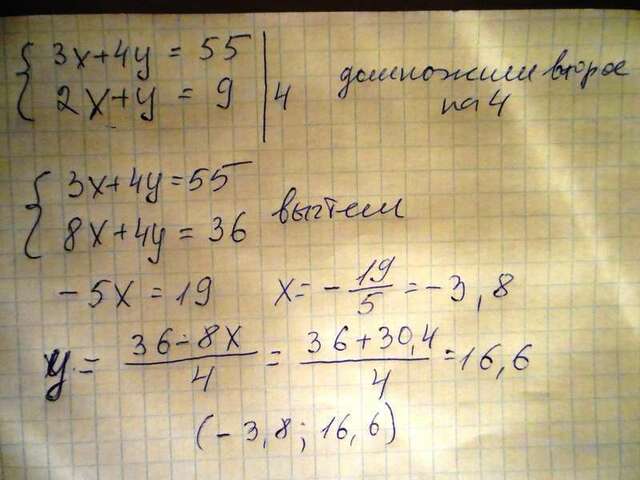 3x+4y = 55
2x+y = 9 | 4 домножим второе
на 4
3x+4y=55
8x+4y=36 вычтем
-5x=19 x=-19/5=-3,8
y= (36-8x)/4 = (36+30,4)/4 =16,6
(-3,8; 16,6)